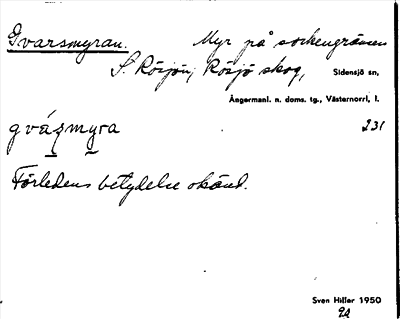 Gvarsmyran. Myr på sockengränsen
S. Rösjön, Rösjö skog, Sidensjö sn,
Ångermanl. n. doms. tg., Västernorrl, l.
gvásmyra 231
Förledens betydelse okänd.
Sven Hiller 1950